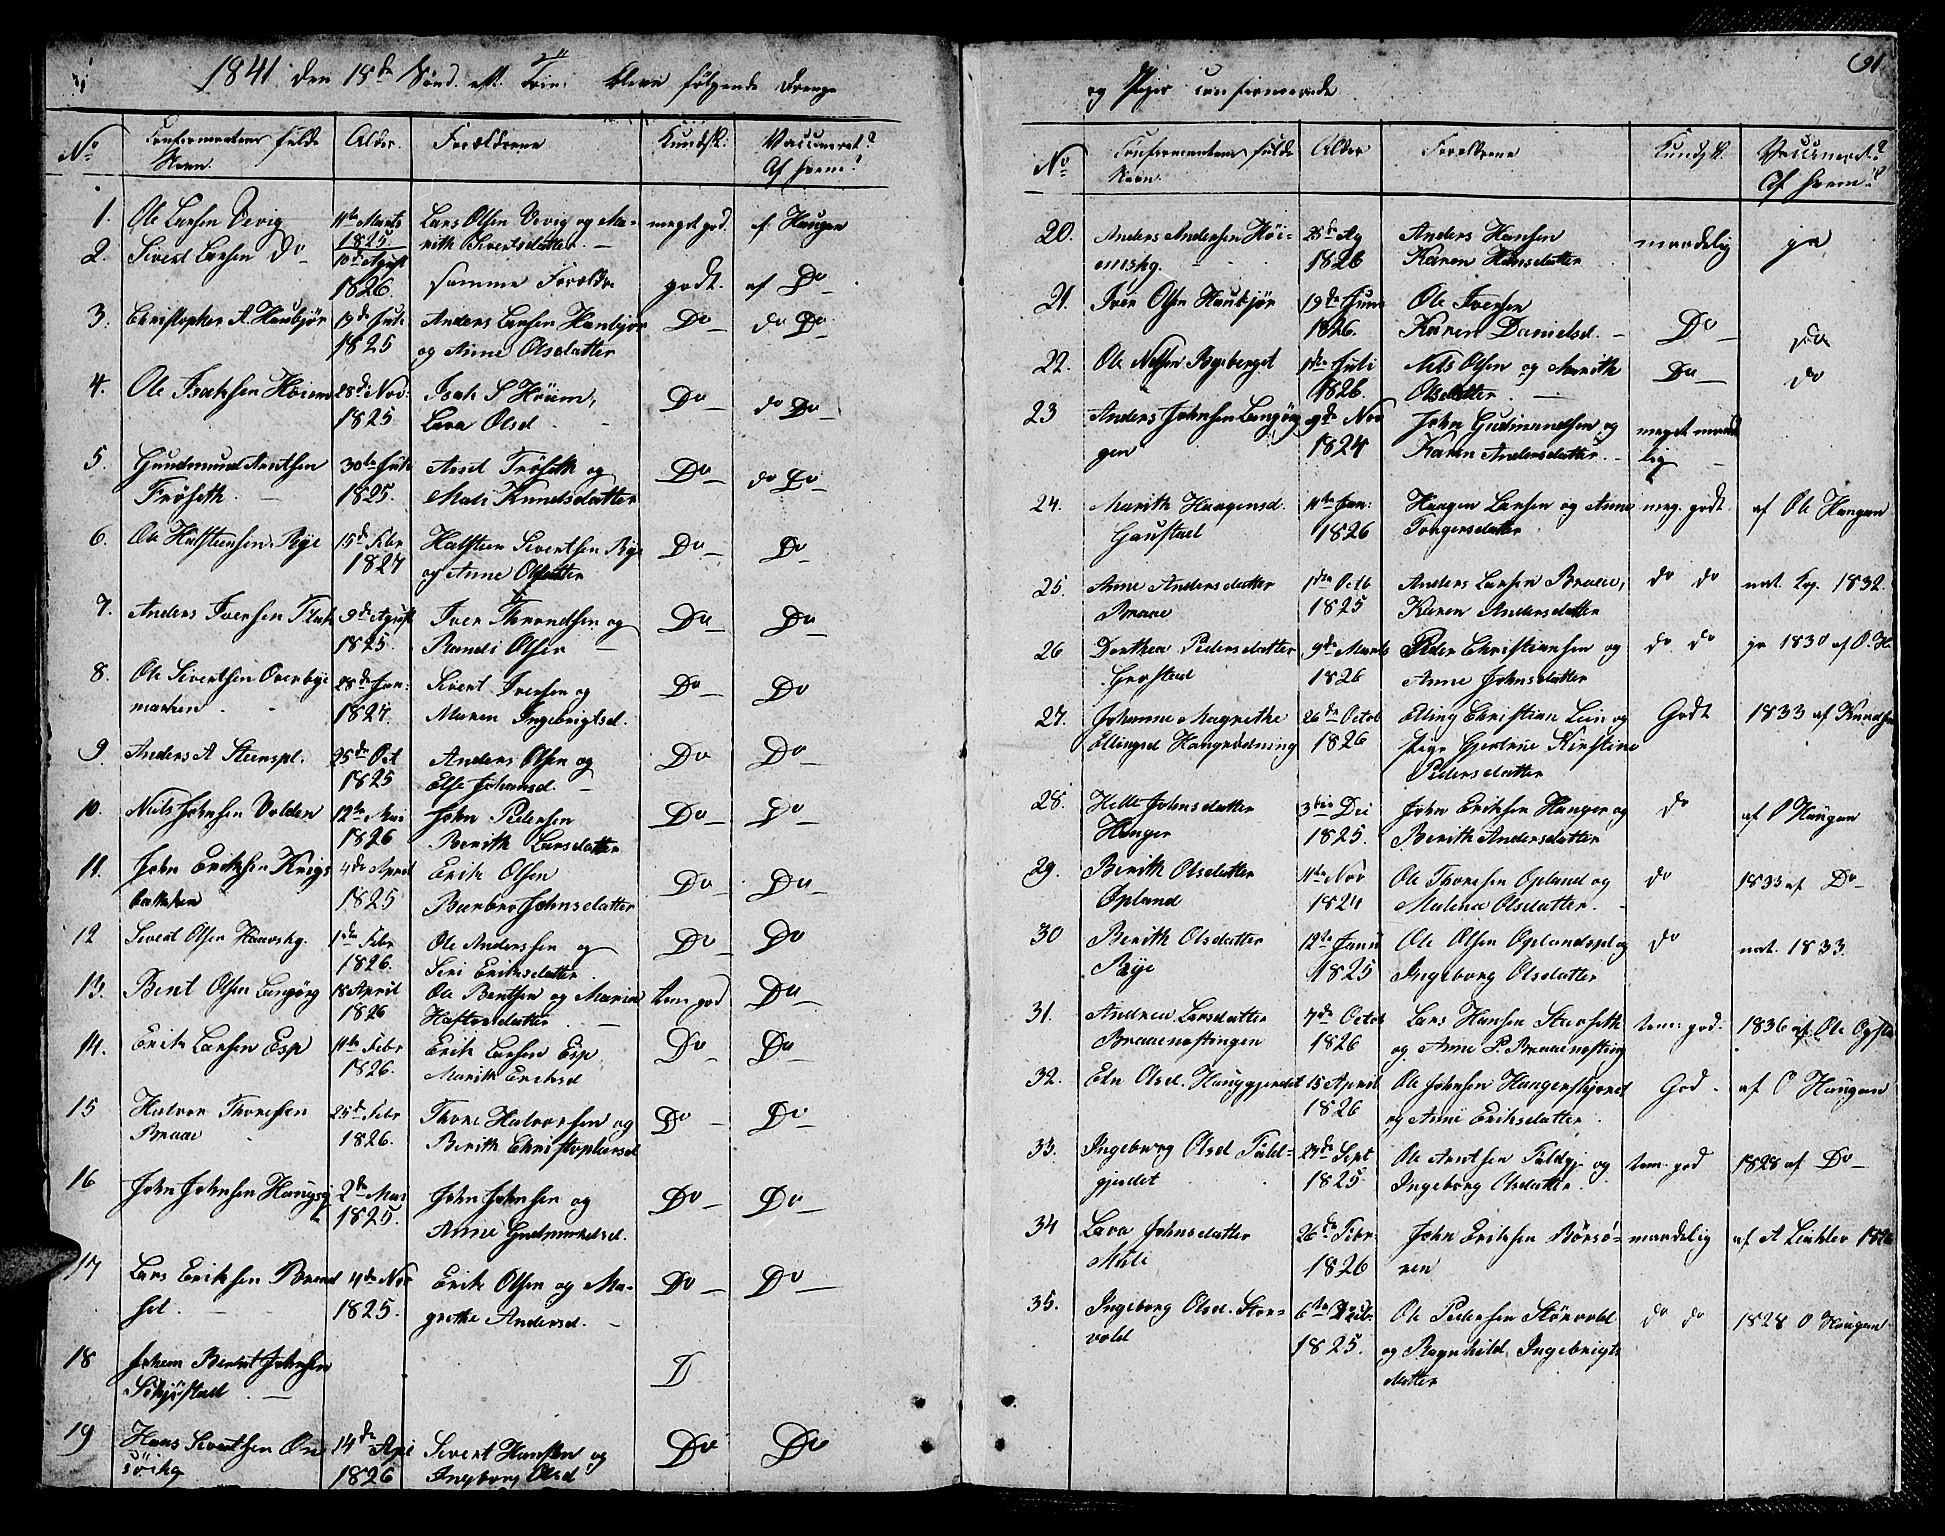 1841 den 18de Sönd. eft. Trin. bleve følgende Drenge
No
Confirmantens fulde
Navn.
Alder.
Forældrene
Kundsk:
Vaccineret?
Af hvem?
1. Ole Larsen Vevig 11te Marts 1825 Lars Olsen Vevig og Marith Sivertsdatter. meget god. af Haugen
2. Sivert Larsen Do 10de Agust 1826. samme Forældre godt. af Do
3. Christopher A. Haubjør 19de Juli 1825 Anders Larsen Haubjør og Anne Olsdatter Do do Do
4. Ole Isaksen Höium 28de Nov: 1825 Isak S Höium, Lava Olsd Do do Do
5. Gundmund Arntsen Fröseth. 30te Juli 1825. Arnt Fröseth og Mali Knudsdatter Do do Do
6. Ole Halsteensen Rye 15de Febr 1827 Halsteen Sivertsen Rye og Anne Olsdatter Do Do
7. Anders Iversen Flaat 9de Agust 1825. Iver Throndsen og Randi Olsen Do Do
8. Ole Sivertsen Overbye marken 28de Jan: 1827. Sivert Iversen og Maren Ingebrigtsd. Do Do
9. Anders A Steenspl. 25de Oct 1825 Anders Olsen og Else Johansd. Do Do
10. Niels Johnsen Volden 12te Mai 1826 John Pedersen Berith Larsdatter Do Do
11. John Eriksen Krigsbakken 4de April 1825 Erik Olsen Barbro Johnsdatter Do Do
12 Sivert Olsen Haavshg. 1de Febr 1826. Ole Anderssen og Siri Eriksdatter Do Do
13. Bent Olsen Langörg 18 April 1826 Ole Bentsen og Maria Haftorsdatter tem god Do
14. Erik Larsen Esp 11te Febr 1826. Erik Larsen Esp Marith Eriksd Do Do
15 Halvor Thoresen Braae 25de Febr 1826. Thore Halvorsen og Berith Christophersd Do Do
16 John Johnsen Haugsg 2de Mai 1825. John Johnsen og Anne Gudmundsd. Do Do
17 Lars Eriksen Brendsel. 4de Nov 1825. Erik Olsen og Magrethe Andersd. Do Do
18 Johan Bernt Johnsen Schjöstad D
19 Hans Sivertsen 14de Apr 1826 Sivert Hansen og Ingeborg Olsd Do Do
91
og Piger confirmerede
No
Confirmantens fulde
Navn.
Alder
Forældrene
Kundsk.
Vaccineret?
Af hvem?
20. Anders Andersen 25de Ag 1826 Anders Hansen Karen Hansdatter maadelig ja
21. Iver Olsen Haubjør 19de Juni 1826. Ole Iversen Karen Danielsd. Do do
22. Ole Nilsen Byeberget 1de Juli 1826. Nils Olsen og Marith Olsdatter. Do do
23 Anders Johnsen Langörgen 9de Nov 1824 John Gudmundsen og Karen Andersdatter. meget maadelig
24. Marith Haagensd. Gaustad 11te Jan: 1826 Haagen Larsen og Anne Torgersdatter meg. godt. af Ole Haugan
25. Anne Andersdatter Braae 1de Octb 1825 Anders Larsen Braae, Karen Andersdatter do do nat. Kop. 1832.
26 Dorthea Pedersdatter Grostad 9de Marts 1826 Peder Christiansen og Anne Johnsdatter do do ja 1830 af O. H
27. Johanne Magrethe Ellingsd Haugrødning 26de Octob 1826 Elling Christian Lein og Pige Gjertrue Kirstine Pedersdatter Godt 1833 af Knudsen
28. Helle Johnsdatter Hanger 3die Dec 1825. John Eriksen Hanger og Berith Andersdatter do af O Haugan
29. Berith Olsdatter Opland 11te Nov 1824 Ole Thoresen Opland og Malena Olsdatter. do 1833 af Do
30 Berith Olsdatter Rye 12te Janu 1825 Ole Olsen Oplandspl og Ingeborg Olsdatter do nat. 1833.
31. Andrea Larsdatter Braaenoftingen 7de Octob 1826 Lars Hansen Starseth og Anne P. Braaenofting tem: god. 1836 af Ole Opsta
32. Eln Olsd. Hauggjerdet 15 April 1826 Ole Johnsen og Anne Eriksdatter. God. af O Haugan
33. Ingeborg Olsd Faldgjerdet 29de Sept 1825 Ole Arntsen Faldgj. og Ingeborg Olsdatter. tem. god 1828 af Do
34 Lava Johnsdatter Mule 26de Febr. 1826 John Eriksen Börsören maadelig af A Lükler
35. Ingeborg Olsd. Storvold 6te Decb. 1825. Ole Pedersen Störvold og Ragnhild Ingebrigtsdatter do do 1828 O Haugan